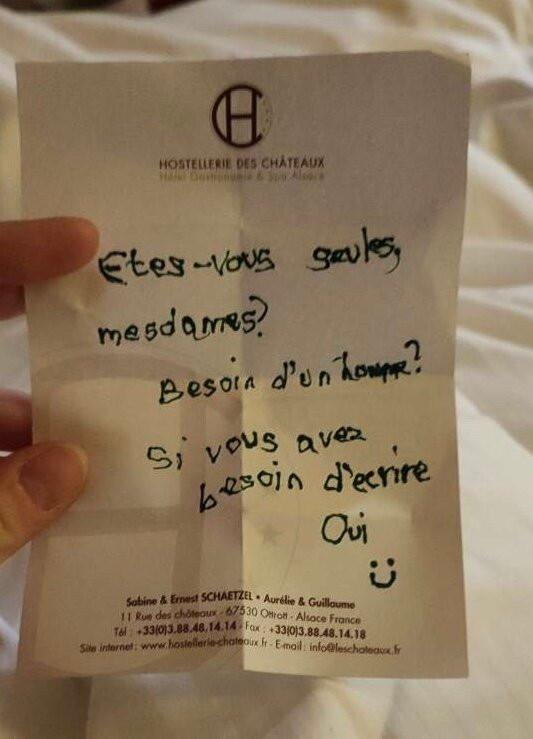 CH
HOSTELLERIE DES CHÂTEAUX
Hôtel Gastronomie & Spa Alsace
Etes-vous seules,
mesdames?
Besoin d'un homme?
Si vous avez
besoin d'ecrire
Oui
Sabine & Ernest SCHAETZEL • Aurélie & Guillaume
11 Rue des châteaux - 67530 Ottrott - Alsace France
Tél : +33(0)3.88.48.14.14 - Fax : +33(0)3.88.48.14.18
Site internet : www.hostellerie-chateaux.fr - E-mail : info@leschateaux.fr